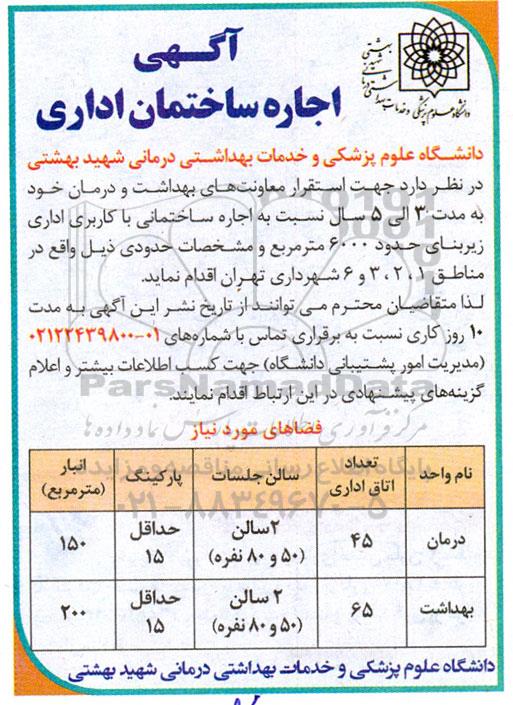 دانشگاه علوم پزشکی و خدمات بهداشتی درمانی شهید بهشتی
آگهی
اجاره ساختمان اداری
دانشگاه علوم پزشکی و خدمات بهداشتی درمانی شهید بهشتی
در نظر دارد جهت استقرار معاونت‌های بهداشت و درمان خود
به مدت ۳ الی ۵ سال نسبت به اجاره ساختمانی با کاربری اداری
زیربنای حدود ۶۰۰۰ مترمربع و مشخصات حدودی ذیل واقع در
مناطق ۱، ۲، ۳ و ۶ شهرداری تهران اقدام نماید.
لذا متقاضیان محترم می توانند از تاریخ نشر این آگهی به مدت
۱۰ روز کاری نسبت به برقراری تماس با شماره‌های ۰۱-۰۲۱۲۲۴۳۹۸۰۰
(مدیریت امور پشتیبانی دانشگاه) جهت کسب اطلاعات بیشتر و اعلام
گزینه‌های پیشنهادی در این ارتباط اقدام نمایند.
ParsNamadData
فضاهای مورد نیاز
نام واحد تعداد اتاق اداری سالن جلسات پارکینگ انبار (مترمربع)
درمان ۴۵ ۲سالن (۵۰ و ۸۰ نفره) حداقل ۱۵ ۱۵۰
بهداشت ۶۵ ۲ سالن (۵۰ و ۸۰ نفره) حداقل ۱۵ ۲۰۰
پایگاه اطلاع رسانی مناقصه و مزایده
۰۲۱-۸۸۳۴۹۶۷۰-۵
دانشگاه علوم پزشکی و خدمات بهداشتی درمانی شهید بهشتی